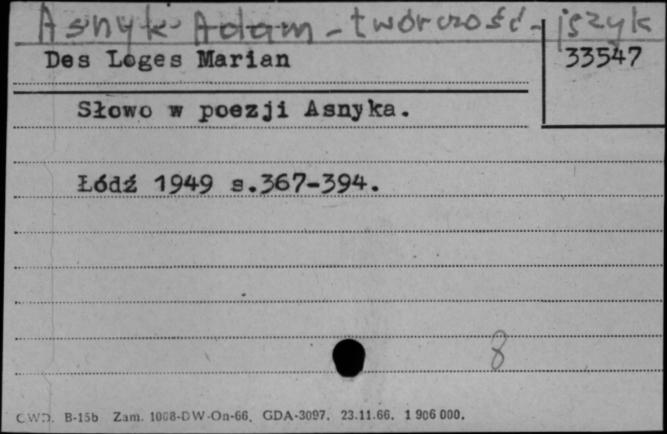 Asnyk Adam - twórczość - język
Des Loges Marian
33547
Słowo w poezji Asnyka.
Łódź 1949 s.367-394.
8
CWD. B-15b Zam. 1068-DW-On-66, GDA-3097. 23.11.66. 1 906 000.